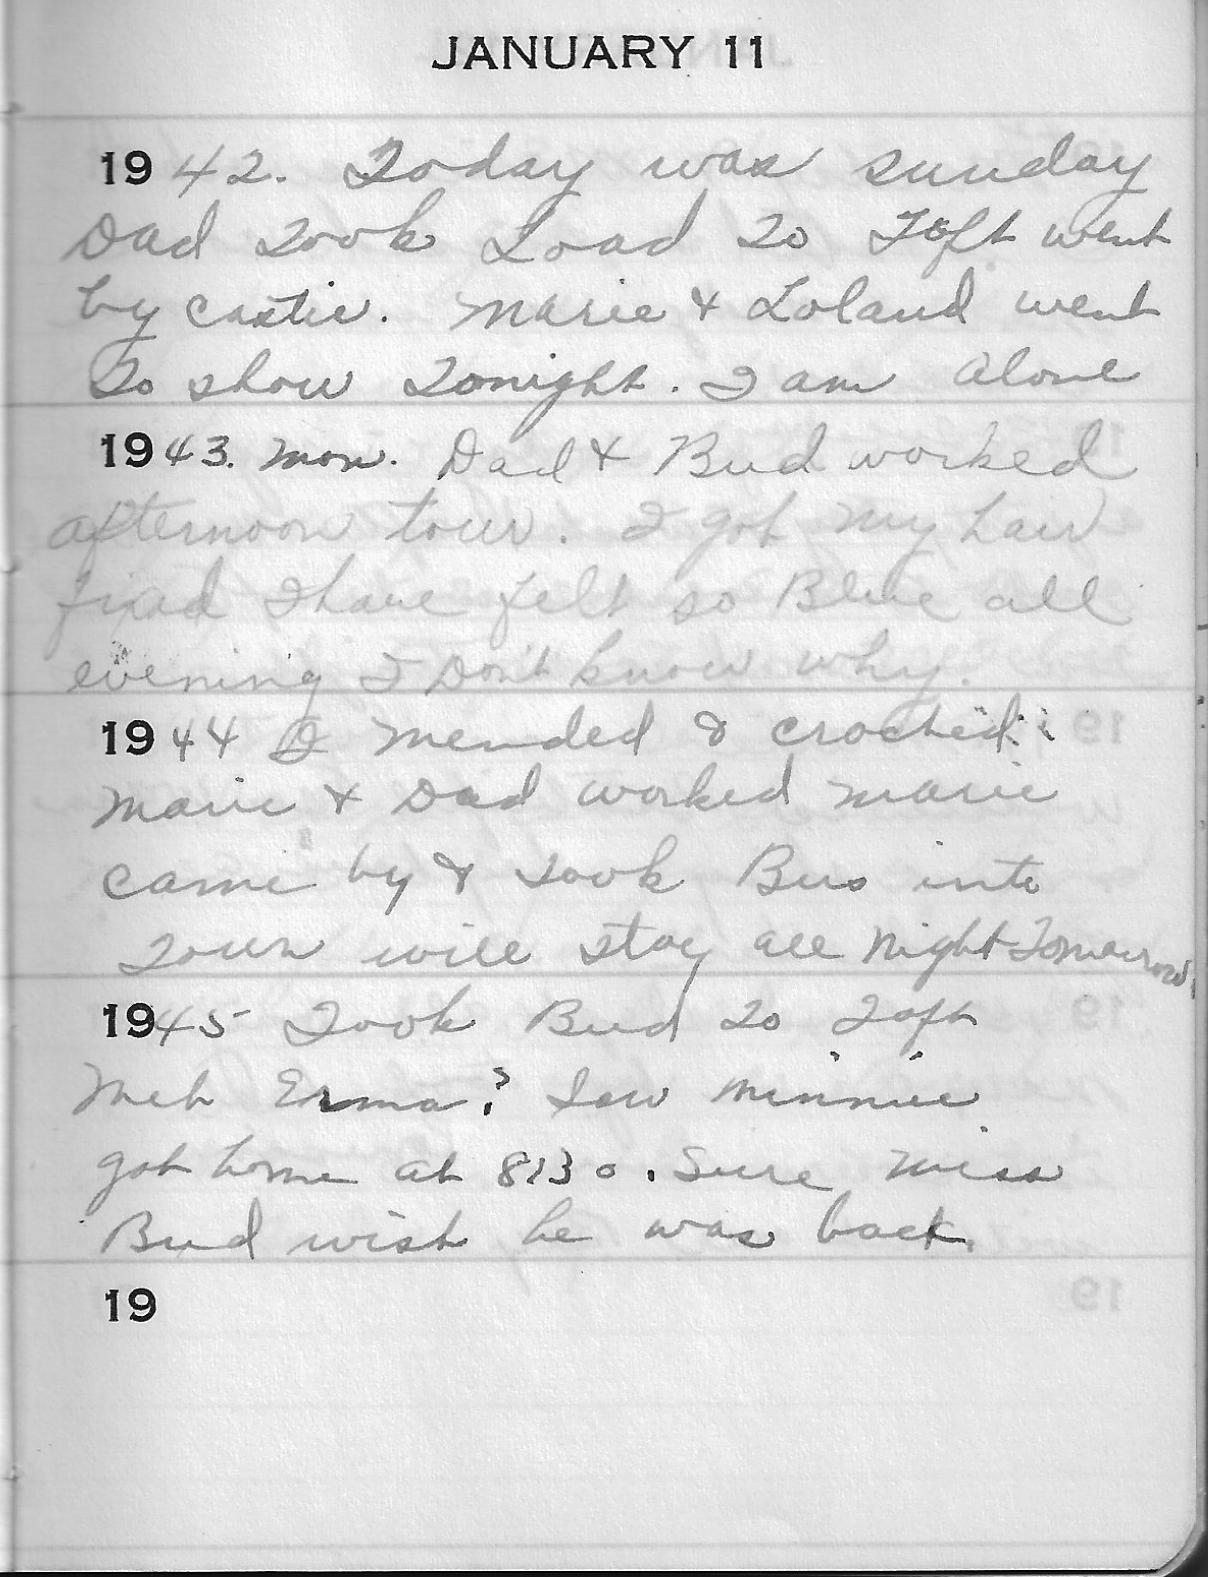 JANUARY 11
1942. Today was sunday
Dad Took Load To Toft went
by Castie. Marie & Loland went
To show Tonight. I am alone
1943. mon. Dad & Bud worked
afternoon tour. I got my hair
fixad I have felt so Blue all
evening I Don't know why.
1944 I mended & crocheted
Marie & Dad worked Marie
came by & Took Bus into
Town will stay all Night Tomorrow.
1945 Took Bud To Taft
Meh Erma? Saw minnie
got home at 8:30. Sure miss
Bud wish he was back.
19